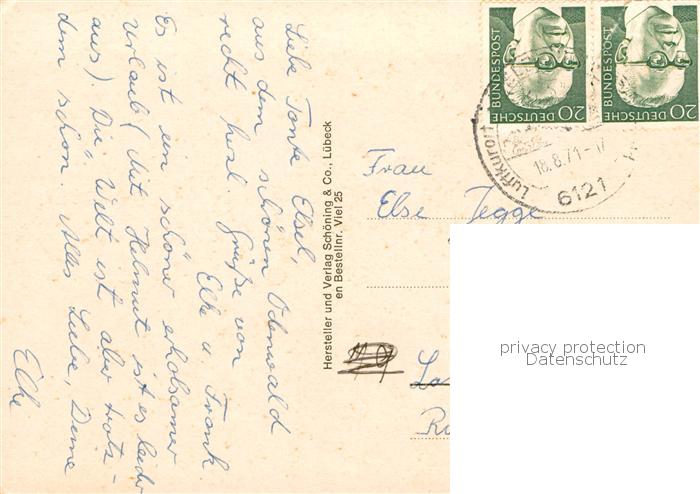 Liebe Tante Elsel,
aus dem schönen Odenwald
recht herzl. Grüße von
Elke u. Frank
Es ist ein schöner erholsamer
Urlaub (Mit Helmut ist es leider
aus). Die Welt ist aber trotz-
dem schön. Alles Liebe, Deine
Elke
Hersteller und Verlag Schöning & Co., Lübeck
en Bestellnr. Viel 25
DEUTSCHE
BUNDESPOST
20
DEUTSCHE
BUNDESPOST
20
Luftkurort
18.8.71
6121
Frau
Else Jegge
privacy protection
Datenschutz